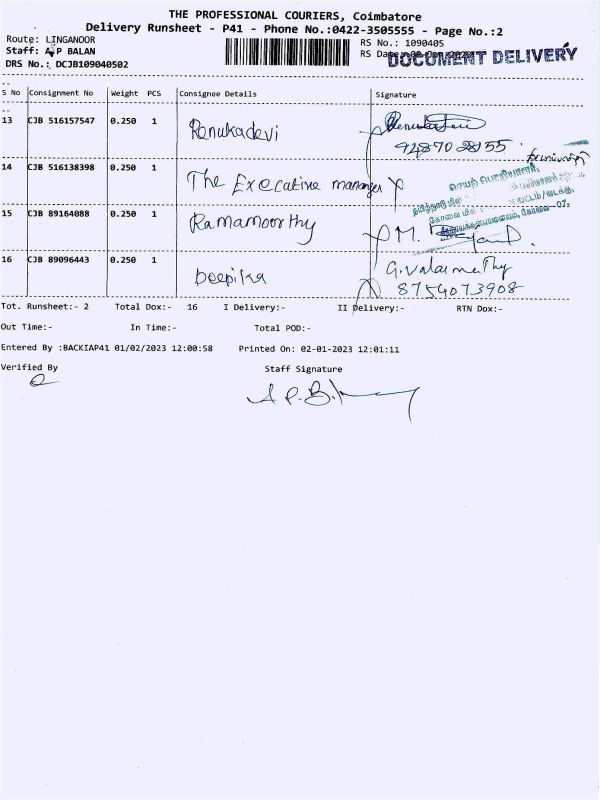 THE PROFESSIONAL COURIERS, Coimbatore
Delivery Runsheet - P41 - Phone No.:0422-3505555 - Page No.:2
Route: LINGANOOR
RS No.: 1090405
Staff: A P BALAN
RS Date:
DOCUMENT DELIVERY
DRS No.: DCJB109040502
S No Consignment No Weight PCS Consignee Details Signature
13 CJB 516157547 0.250 1 Renukadevi
14 CJB 516138398 0.250 1 The Executive manager
15 CJB 89164088 0.250 1 Ramamoorthy M.
16 CJB 89096443 0.250 1 Deepika G.Valarmathy
8754073908
Tot. Runsheet:- 2 Total Dox:- 16 I Delivery:- II Delivery:- RTN Dox:-
Out Time:- In Time:- Total POD:-
Entered By :BACKIAP41 01/02/2023 12:00:58 Printed On: 02-01-2023 12:01:11
Verified By Staff Signature
A.P.B